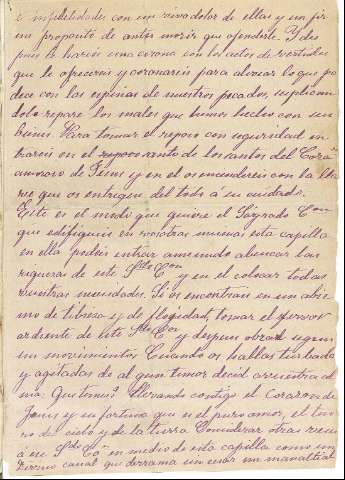 é infidelidades con un vivo dolor de ellas y un fir
me propósito de antes morir que ofenderle. Y des
pues le hareis una corona con los actos de virtudes
que le ofrecereis y coronareis para aliviar lo que pa
dece con las espinas de nuestros pecados, suplicán
dole repare los males que hemos hecho con sus
bienes. Para tomar el reposo con seguridad en
trareis en el reposo santo de los santos del Cora
amoroso de Jesus y en el os encendereis con la
que os entregeis del todo á su cuidado.
Este es el modo que quiere el Sagrado Con
que edifiqueis en vosotras mismas esta capilla
en ella podeis entrar amenudo abuscar las
riquezas de este Sdo Con y en el colocar todas
vuestras necesidades. Si os encontrais en un abis
mo de tibieza y de flogedad, tomar el fervor
ardiente de este Sdo Con y despues obrad segun
sus movimientos Cuando os hallais turbada
y agitadas de algun temor decid a vuestra al
ma: Que temes? llevando contigo el Corazon de
Jesus y su fortuna que es el puro amor, el teso
ro del cielo y de la tierra Considerar otras veces
á ese Sdo Con en medio de esta capilla como un
eterno canal que derrama sin cesar un manantial